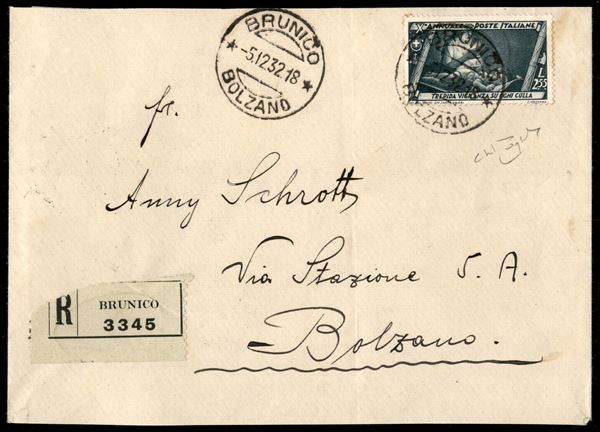 BRUNICO
-5.12.32.18
BOLZANO
X ANNUALE POSTE ITALIANE
L
2,55
TREPIDA VIGILANZA SU OGNI CULLA
BRUNICO
BOLZANO
fr.
Anny Schrott
Via Stazione 5. A.
Bolzano.
R
BRUNICO
3345